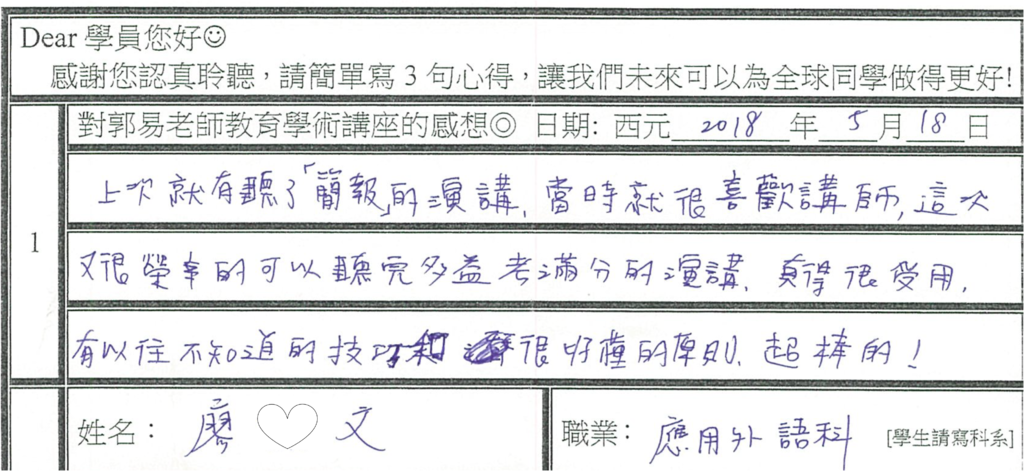 Dear 學員您好☺
感謝您認真聆聽，請簡單寫 3 句心得，讓我們未來可以為全球同學做得更好!
對郭易老師教育學術講座的感想◎ 日期: 西元 2018 年 5 月 18 日
1
上次就有聽了「簡報」的演講,當時就很喜歡講師,這次
又很榮幸的可以聽完多益考滿分的演講,真得很受用,
有以往不知道的技巧和很好懂的原則,超棒的!
姓名： 廖♡文
職業： 應用外語科 [學生請寫科系]